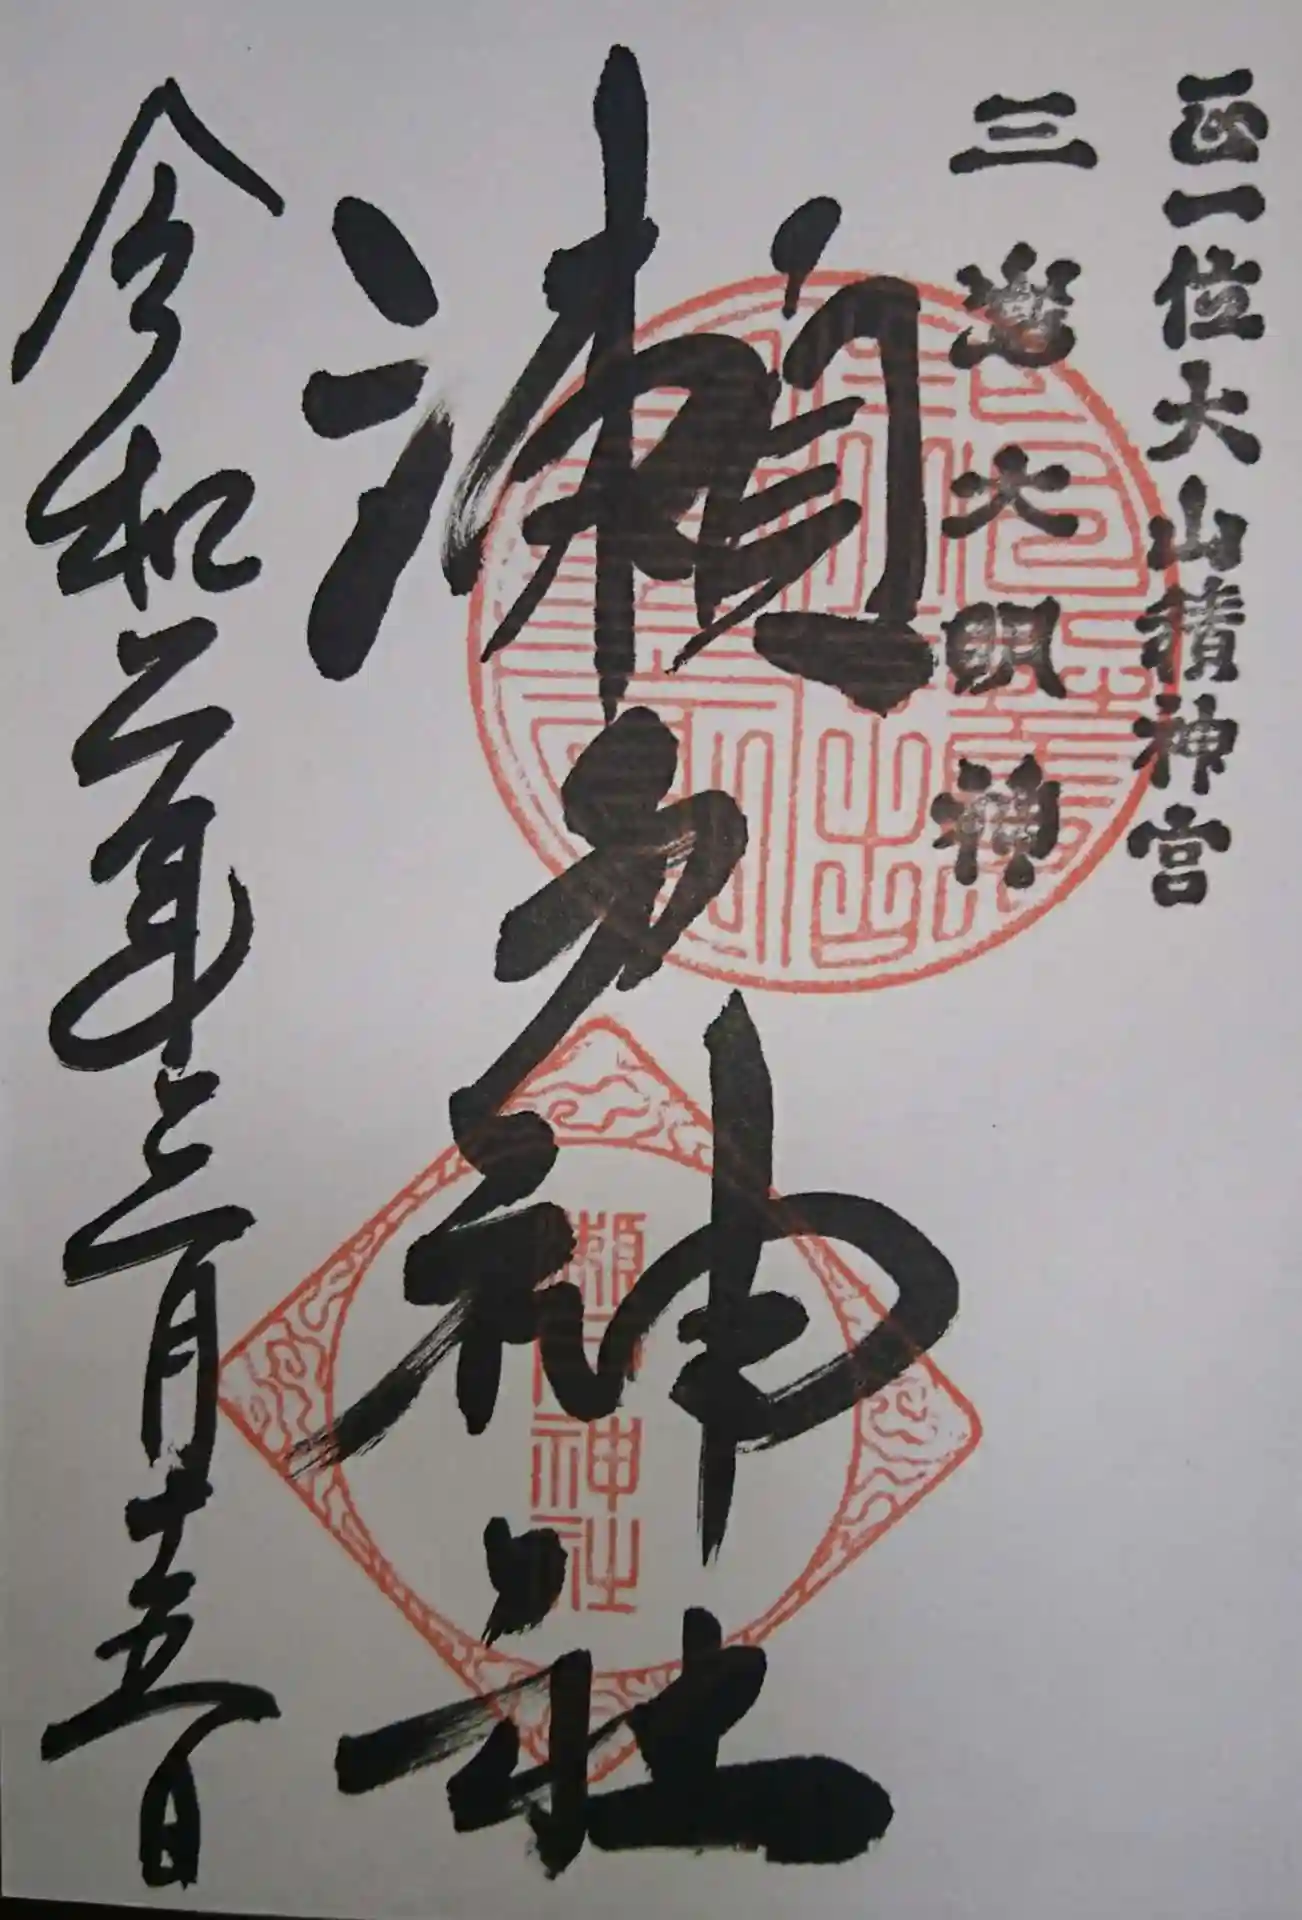 正一位大山積神宮
三嶌大明神
瀬戸神社
瀬戸神社
令和二年三月十五日